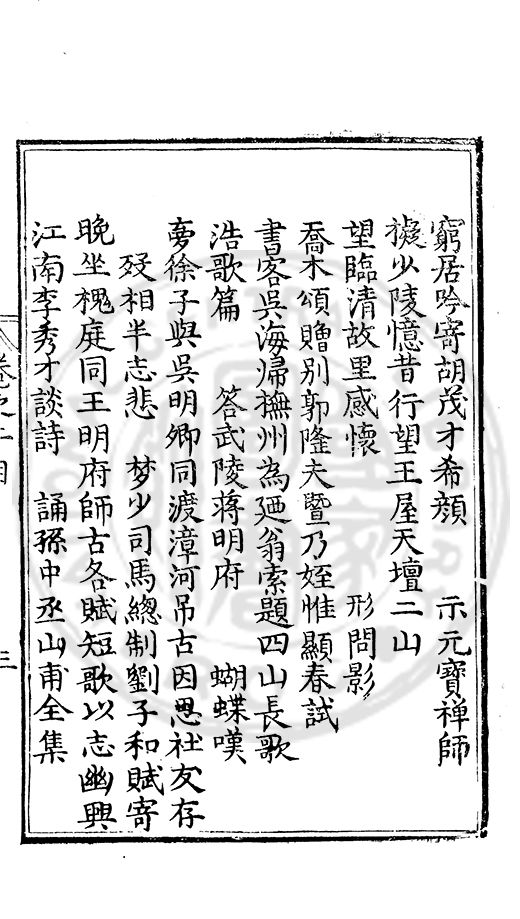 窮居吟寄胡茂才希顔　示元寶禅師
擬少陵憶昔行望王屋天壇二山
望臨清故里感懷　形問影
喬木頌贈別郭隆夫暨乃姪惟顯春試
書客吳海帰撫州為廼翁索題四山長歌
浩歌篇　答武陵蔣明府　蝴蝶嘆
夢徐子與吳明卿同渡漳河吊古因思社友存
歿相半志悲　梦少司馬總制劉子和賦寄
晚坐槐庭同王明府師古各賦短歌以志幽興
江南李秀才談詩　誦孫中丞山甫全集
三